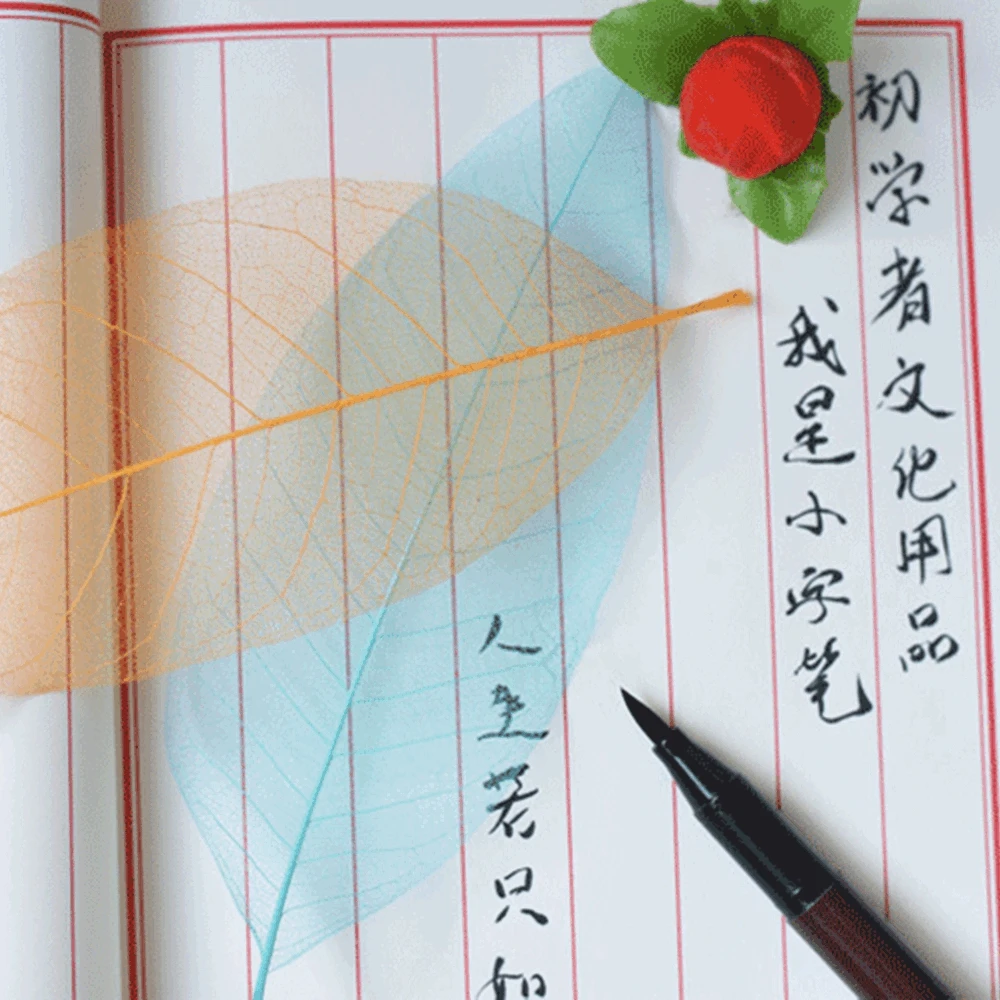 初学者文化用品
我是小字笔
人生若只如